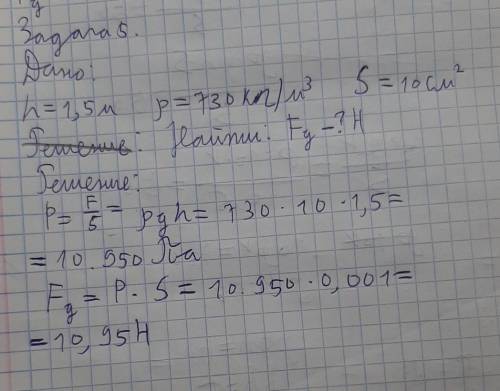 Задача 5.
Дано:
h = 1,5 м   p = 730 кг/м³   S = 10 см²
Решение: Найти: Fg - ? Н
Решение:
P = F/S = pgh = 730 · 10 · 1,5 =
= 10.950 Па
Fg = P · S = 10.950 · 0,001 =
= 10,95 Н